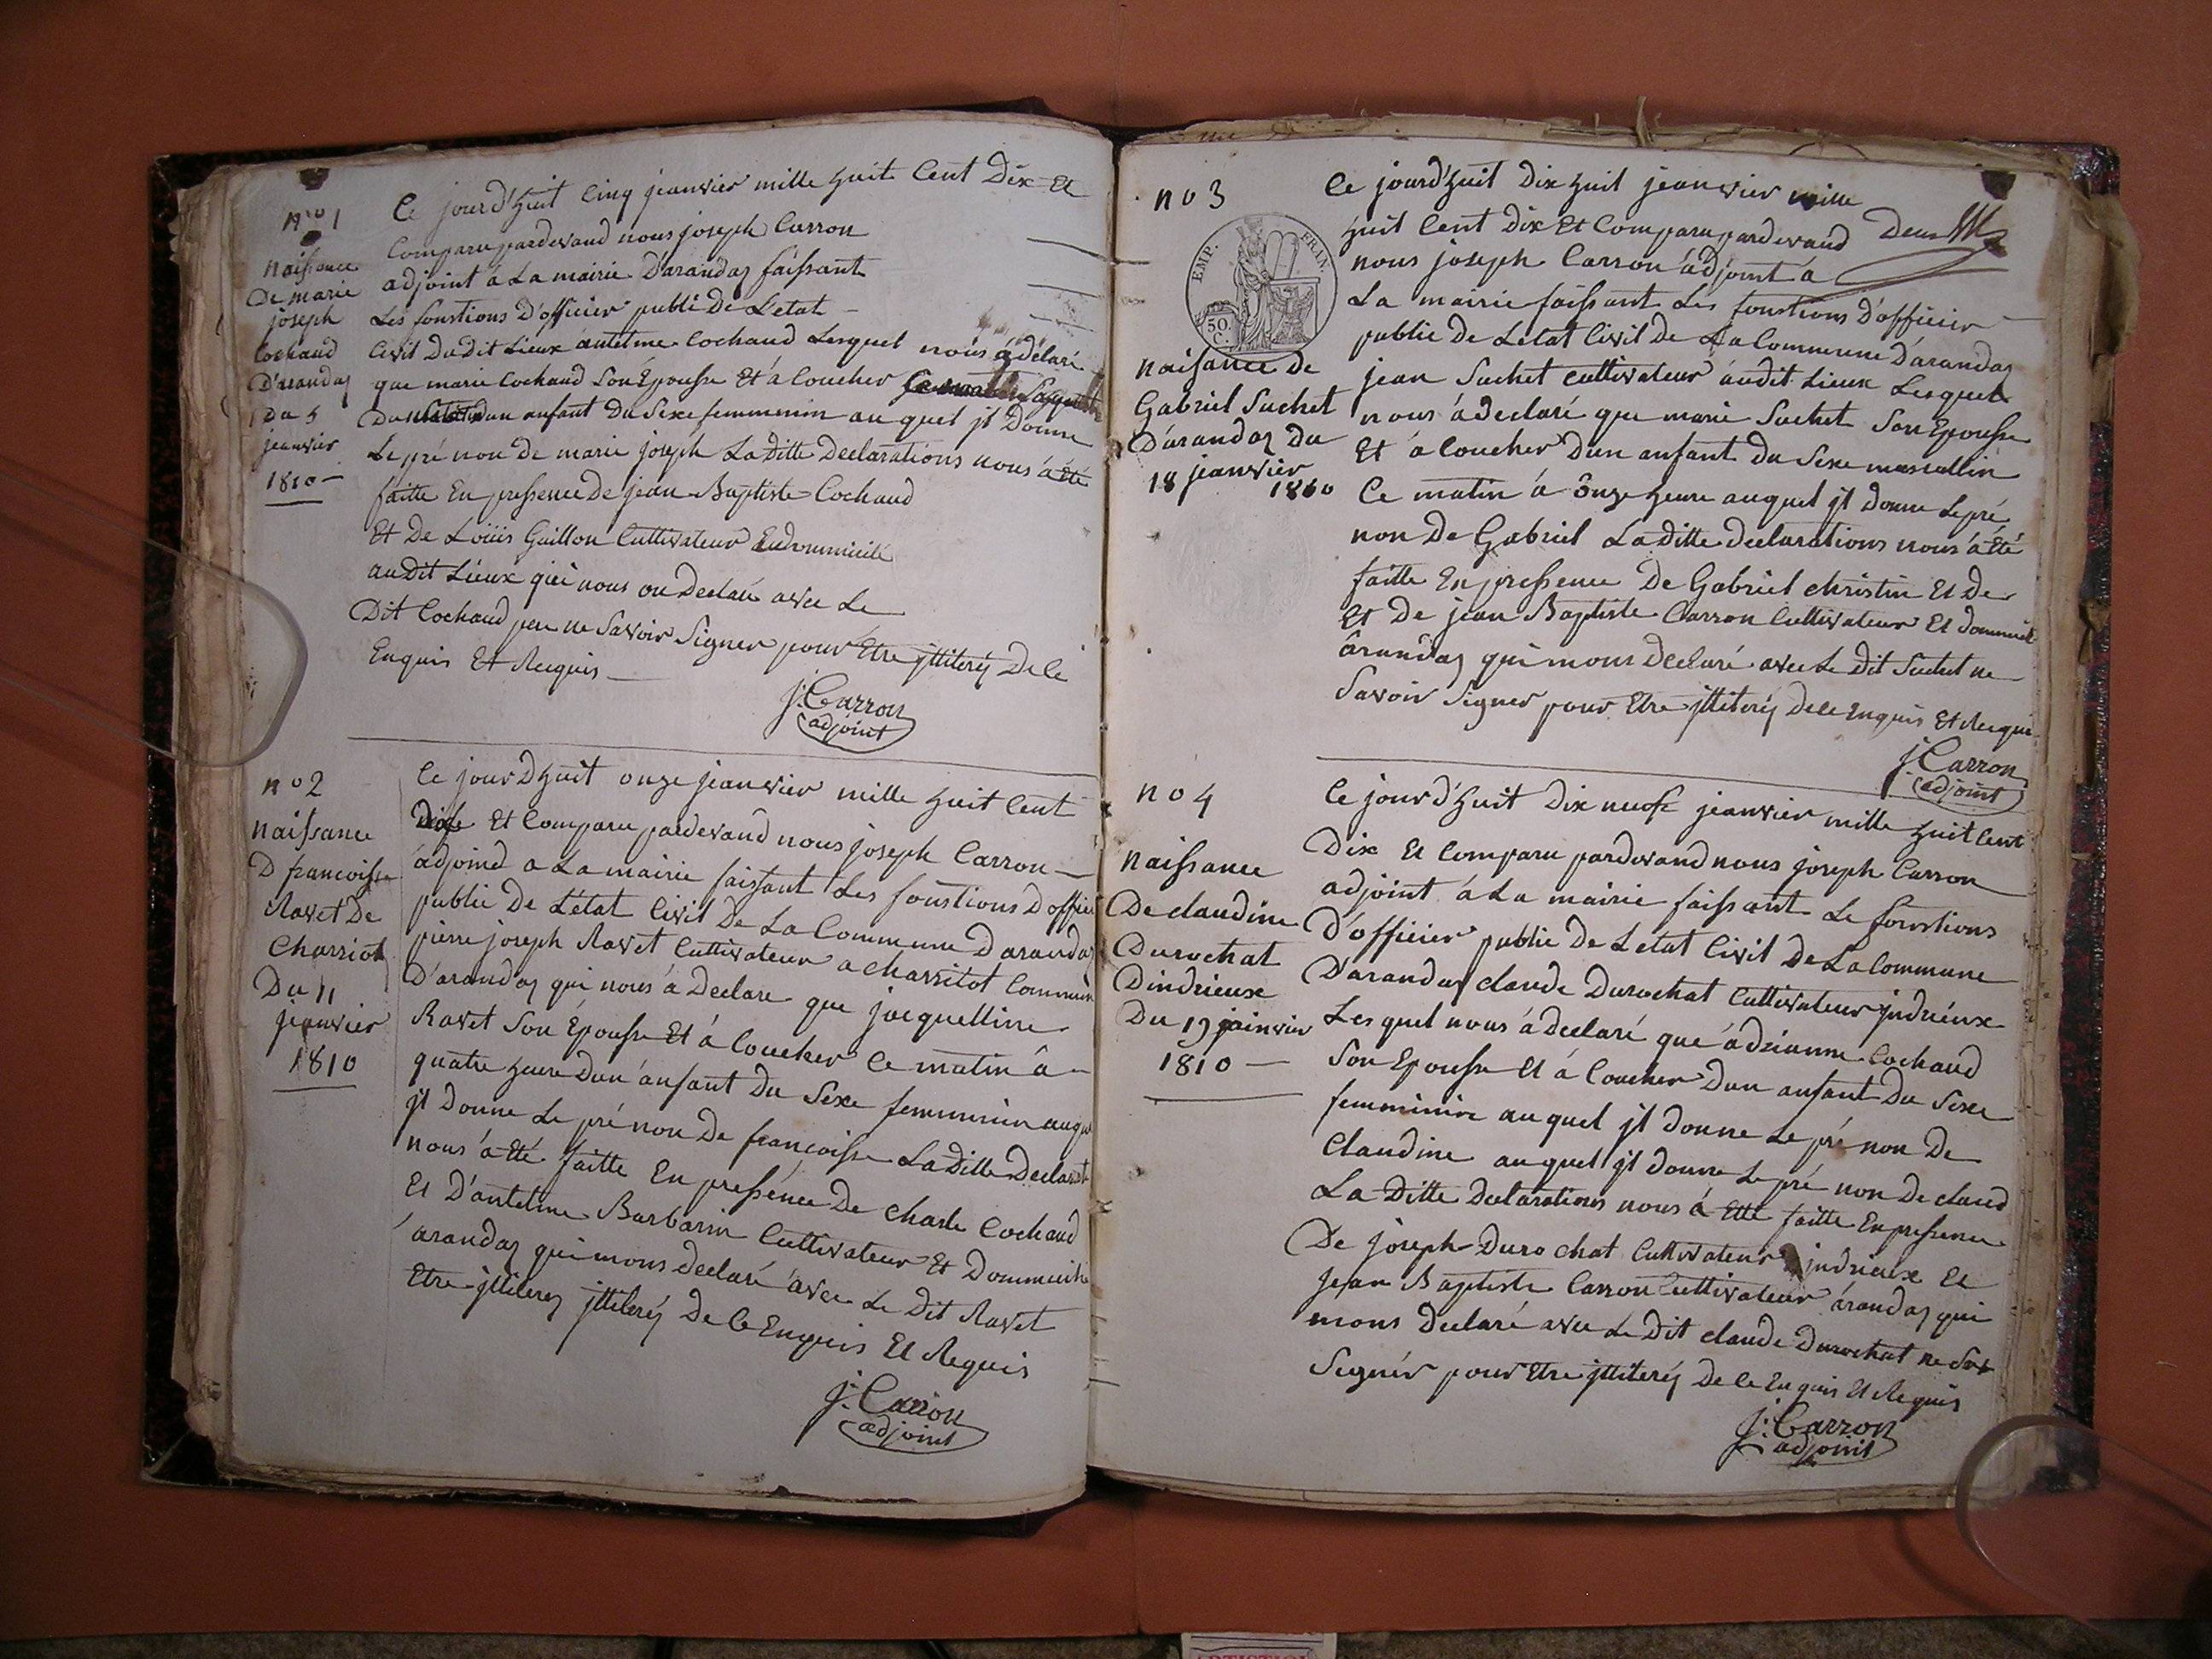 no 1
naissance
De marie
joseph
Cochaud
D'arandas
Du 5
jeanvier
1810
Ce jourd'huit Cinq jeanvier mille huit Cent Dix Et
Comparu pardevand nous joseph Carron
adjoint á La mairie D'arandas faissant
Les fonstions D'officier publi De L'etat
Civil Du Dit Lieux antelme Cochaud Lesquel nous á délaré
que marie Cochaud Son Epousse Et á Coucher
Dun anfant Du Sexe femminin au quel jl Donne
Le pré non De marie joseph La Ditte Declarations nous á été
faitte En pressence De jean Baptiste Cochaud
Et De Loüis Guillon Cultivateur
au Dit Lieux qui nous on Declaré avec Le
Dit Cochaud ne Savoir Signer pour Etre jttiteréz De Ce
Enquis Et Requis
J: Carron
adjoint
no 2
naissance
D francoisse
Ravet De
Charriot
Du 11
jeanvier
1810
Ce jourDhuit onze jeanvier mille huit Cent
Dix Et Comparu pardevand nous joseph Carron
adjoind a La mairie faissant Les fonstions D offici
public De L'état Civil De La Commune D arandas
pierre joseph Ravet Cultivateur a Commun
D'arandas qui nous á Declare que jacquelline
Ravet Son Epousse Et á Coucher Ce matin â
quatre heure Dun anfant Du Sexe femminin auqu
jl Donne Le pré non De francoisse La Ditte Declarat
nous á été faitte En pressénce De Charle Cochaud
Et D'antelme Barbarin Cultivateur Et
arandas qui nous Declaré avec Le Dit Ravet
Etre jttiterez jttiteréz De Ce Enquis Et Requis
J: Carron
adjoint
no 3
EMP. FRAN.
50 C.
naissance De
Gabriel Suchet
D'arandas Du
18 jeanvier
1810
Ce jourd'huit Dix huit jeanvier mille
huit Cent Dix Et Comparu pardevand
Deux
nous joseph Carron adjoint á
La mairie faissant Les fonstions D'officier
public De L'etat Civil De La Commune D'arandas
jean Suchet cultivateur audit Lieux Lesquel
nous á declaré que marie Suchet Son Epousse
Et á Coucher Dun anfant Du Sexe masculin
Ce matin á ônze heure auquel jl donne Le pré
non De Gabriel La Ditte declarations nous á Eté
faitte En pressence De Gabriel christin Et De
Et De jean Baptiste Carron Cultivateur Et
ârandas qui nous Declaré avec Le Dit Suchet ne
Savoir Signer pour Etre jttiteréz De Ce Enquis Et Requi
J: Carron
adjoint
no 4
naissance
De claudine
Durochat
Dindrieux
Du 19 jainvier
1810
Ce jourd'huit Dix neuf jeanvier mille huit Cent
Dix Et Comparu pardevand nous joseph Carron
adjoint á La mairie faissant Le fonstions
D'officier public De L'etat Civil De La Commune
D'arandas claude Durochat Cultivateur jndrieux
Lesquel nous á declaré que ádrianne Cochaud
Son Epousse Et á Coucher Dun anfant Du Sexe
femminine au quel jl donne Le pré non De
Claudine au quel jl donne Le pré non De claud
La Ditte Declarations nous á Etté faitte En pressence
De joseph Durochat Cultivateur jndrieux Et
jean Baptiste Carron Cultivateur árandas qui
nous declaré avec Le Dit claude Durochat ne Sav
Signér pour Etre jttiteréz De Ce Enquis Et Requis
J: Carron
adjoint